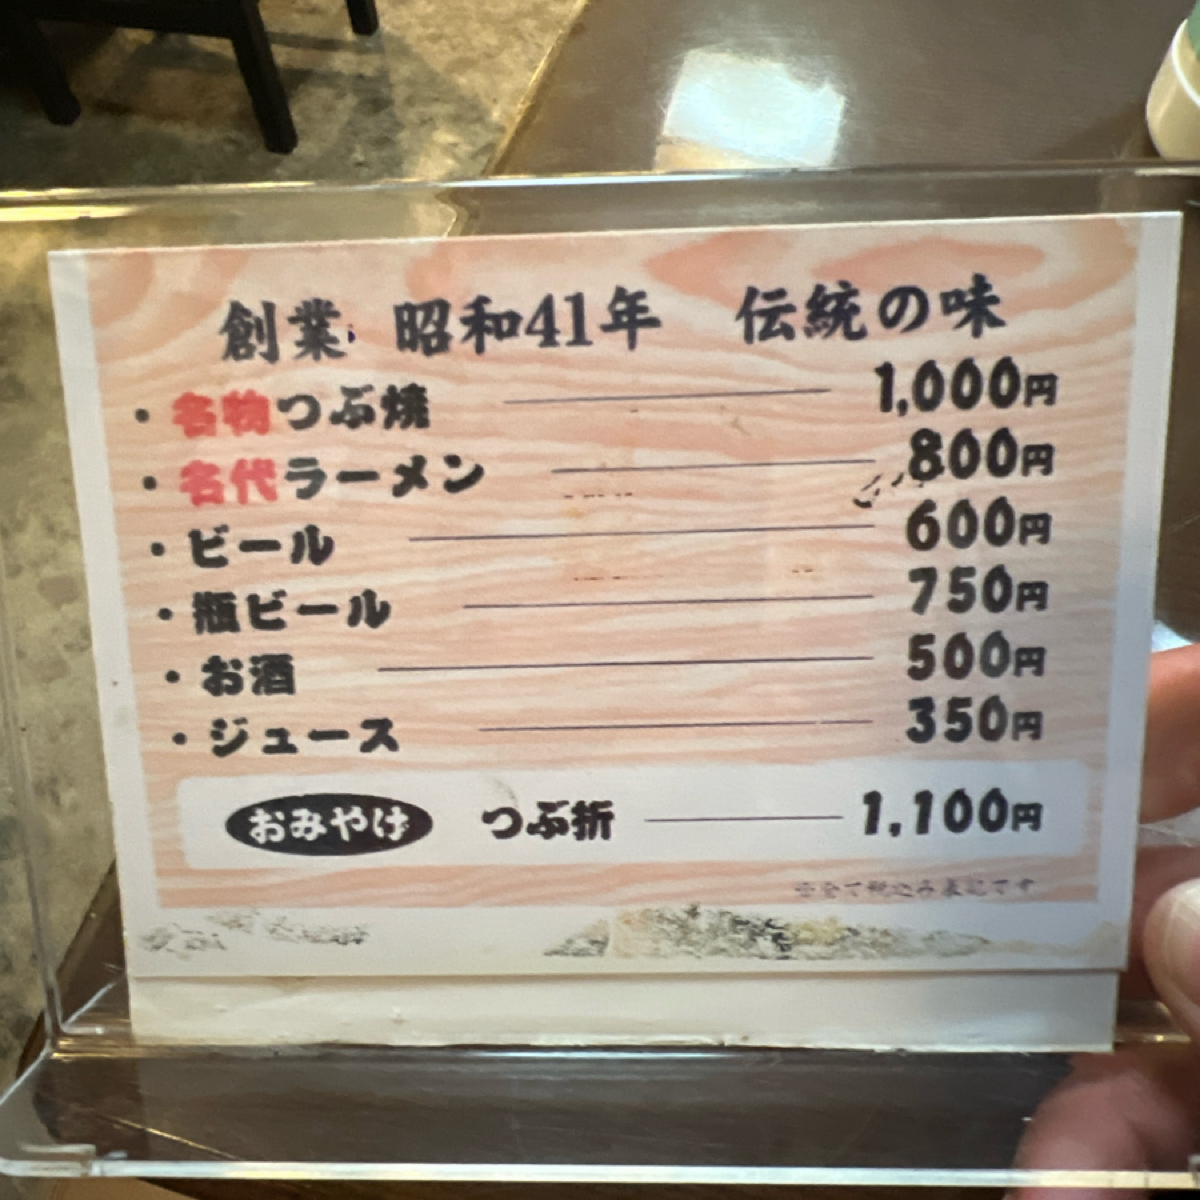 創業 昭和41年 伝統の味
・名物つぶ焼 1,000円
・名代ラーメン 800円
・ビール 600円
・瓶ビール 750円
・お酒 500円
・ジュース 350円
おみやげ つぶ折 1,100円
※全て税込み表記です